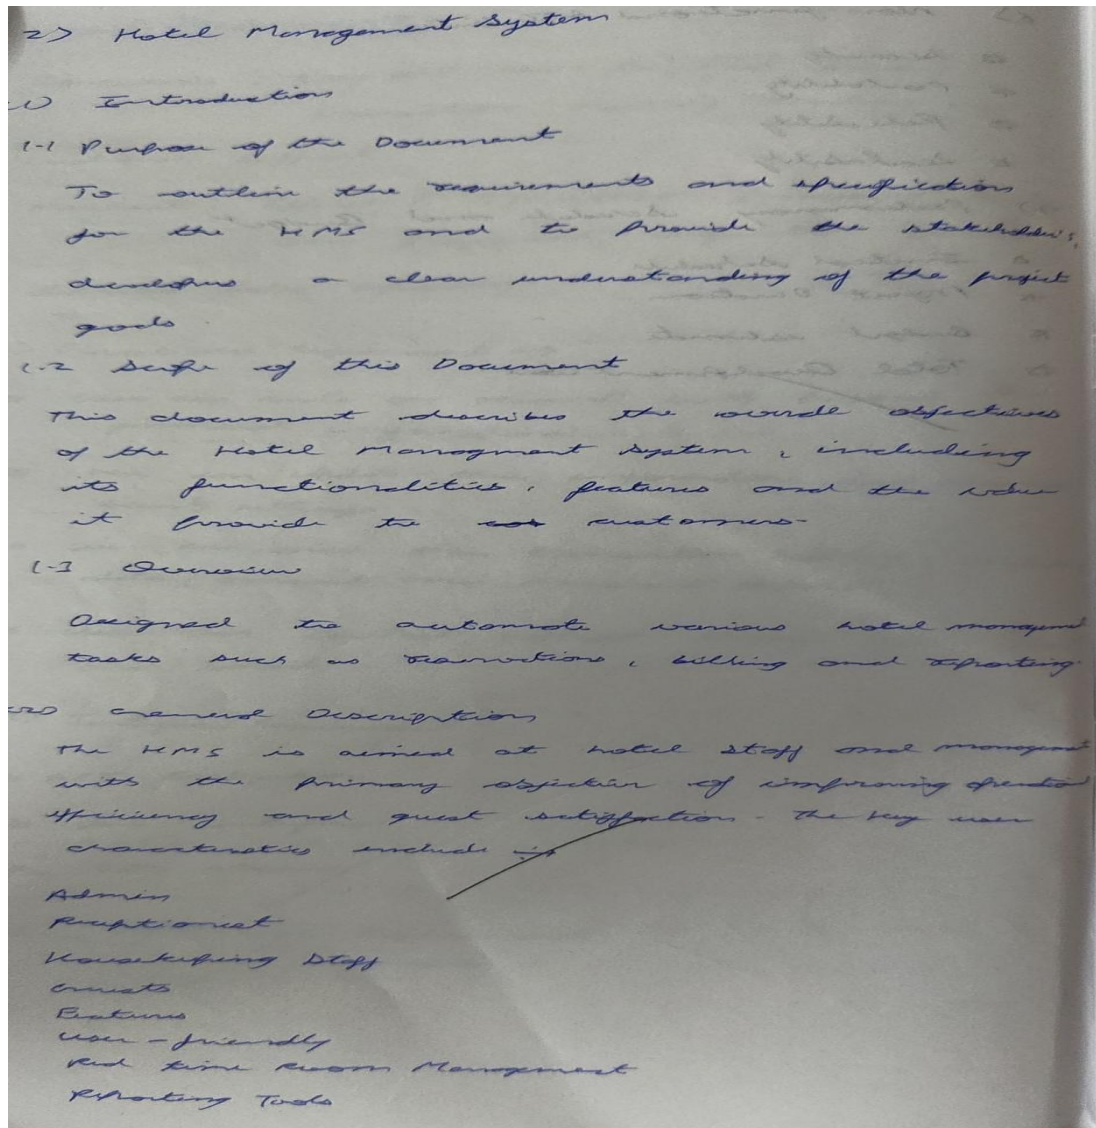 2) Hotel Management System
1) Introduction
1.1 Purpose of the Document
To outline the requirements and specifications
for the HMS and to provide the stakeholders,
developers a clear understanding of the project
goals
1.2 Scope of this Document
This document describes the overall objectives
of the Hotel Managment System, including
its functionalities, features and the value
it provide to customers.
1.3 Overview
Designed to automate various hotel management
tasks such as reservations, billing and reporting.
2) General Description
The HMS is aimed at hotel staff and management
with the primary objective of improving operational
efficiency and guest satisfaction. The key user
characteristics include :-
Admin
Receptionist
Housekeeping Staff
Guests
Features
User-friendly
Real time Room Management
Reporting Tools